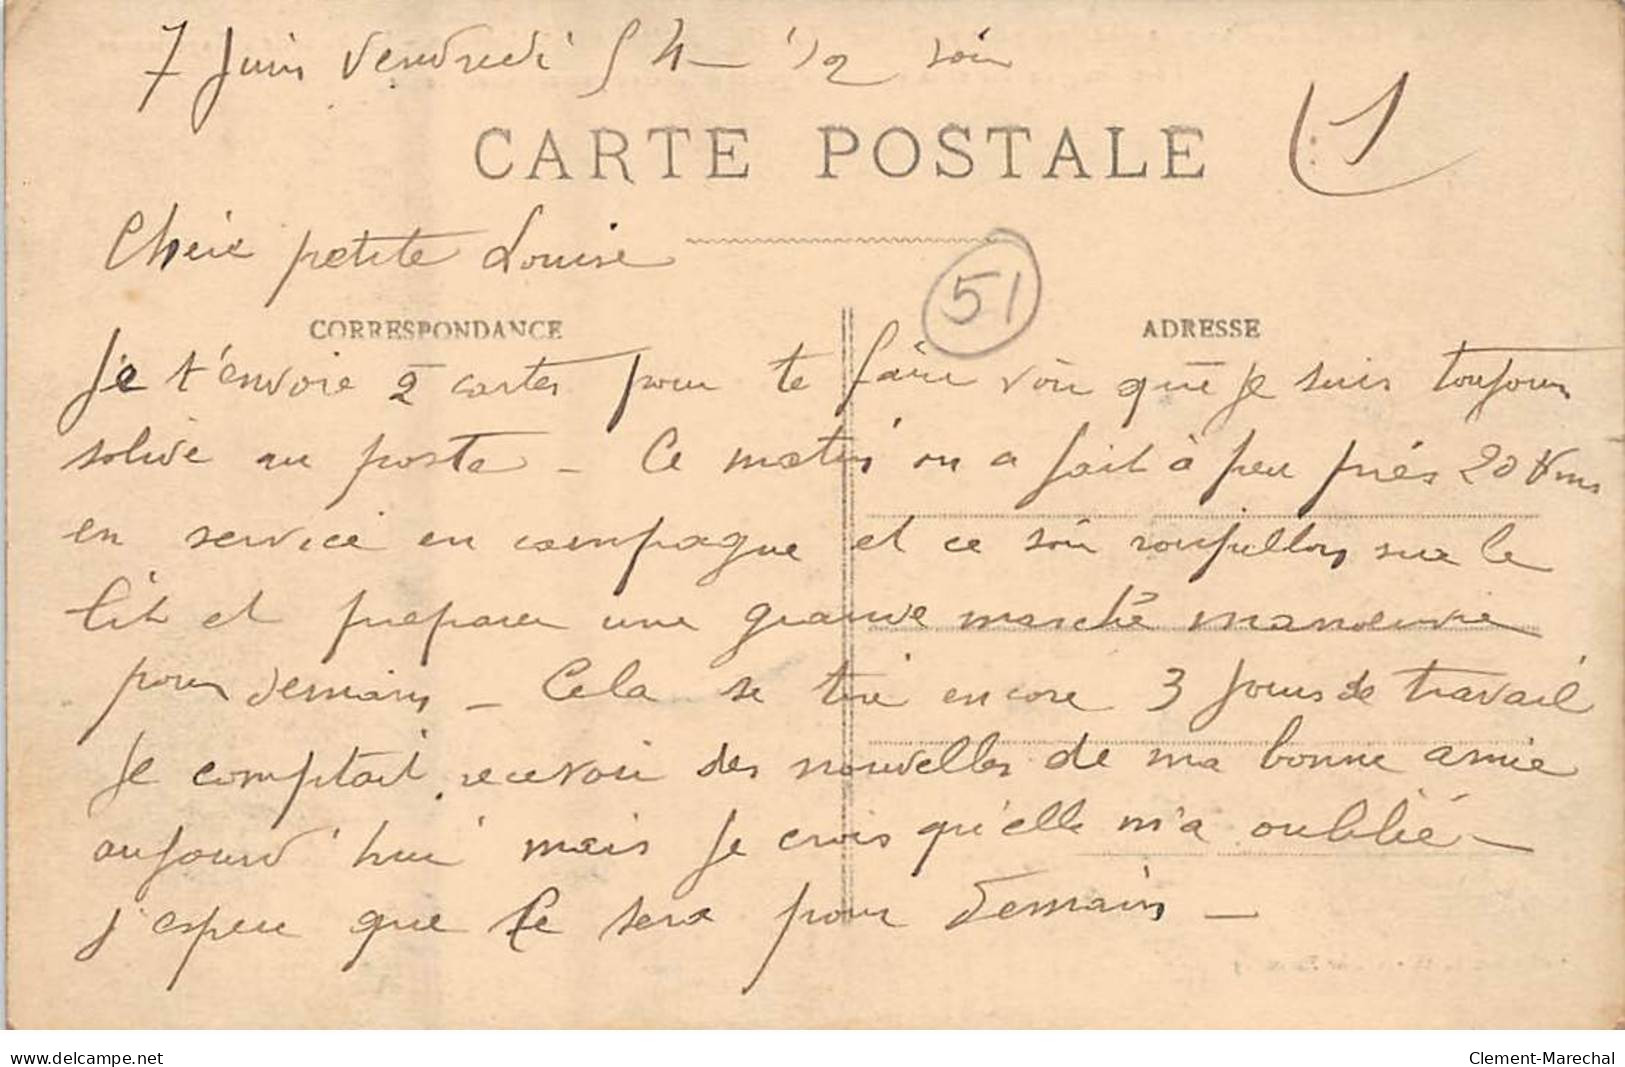 7 Juin Vendredi 5 h 1/2 soir
1
CARTE POSTALE
Chere petite Louise
51
CORRESPONDANCE
ADRESSE
Je t'envoie 2 cartes pour te faire voir que je suis toujours
solide au poste - Ce matin on a fait à peu près 20 Kms
en service en campagne et ce soir roupillon sur le
lit et preparer une grande marche manoeuvre
pour demain - Cela se tire encore 3 jours de travail
Je comptait recevoir des nouvelles de ma bonne amie
aujourd'hui mais je crois qu'elle m'a oublié -
j'espere que ce sera pour demain -
www.delcampe.net
Clement-Marechal